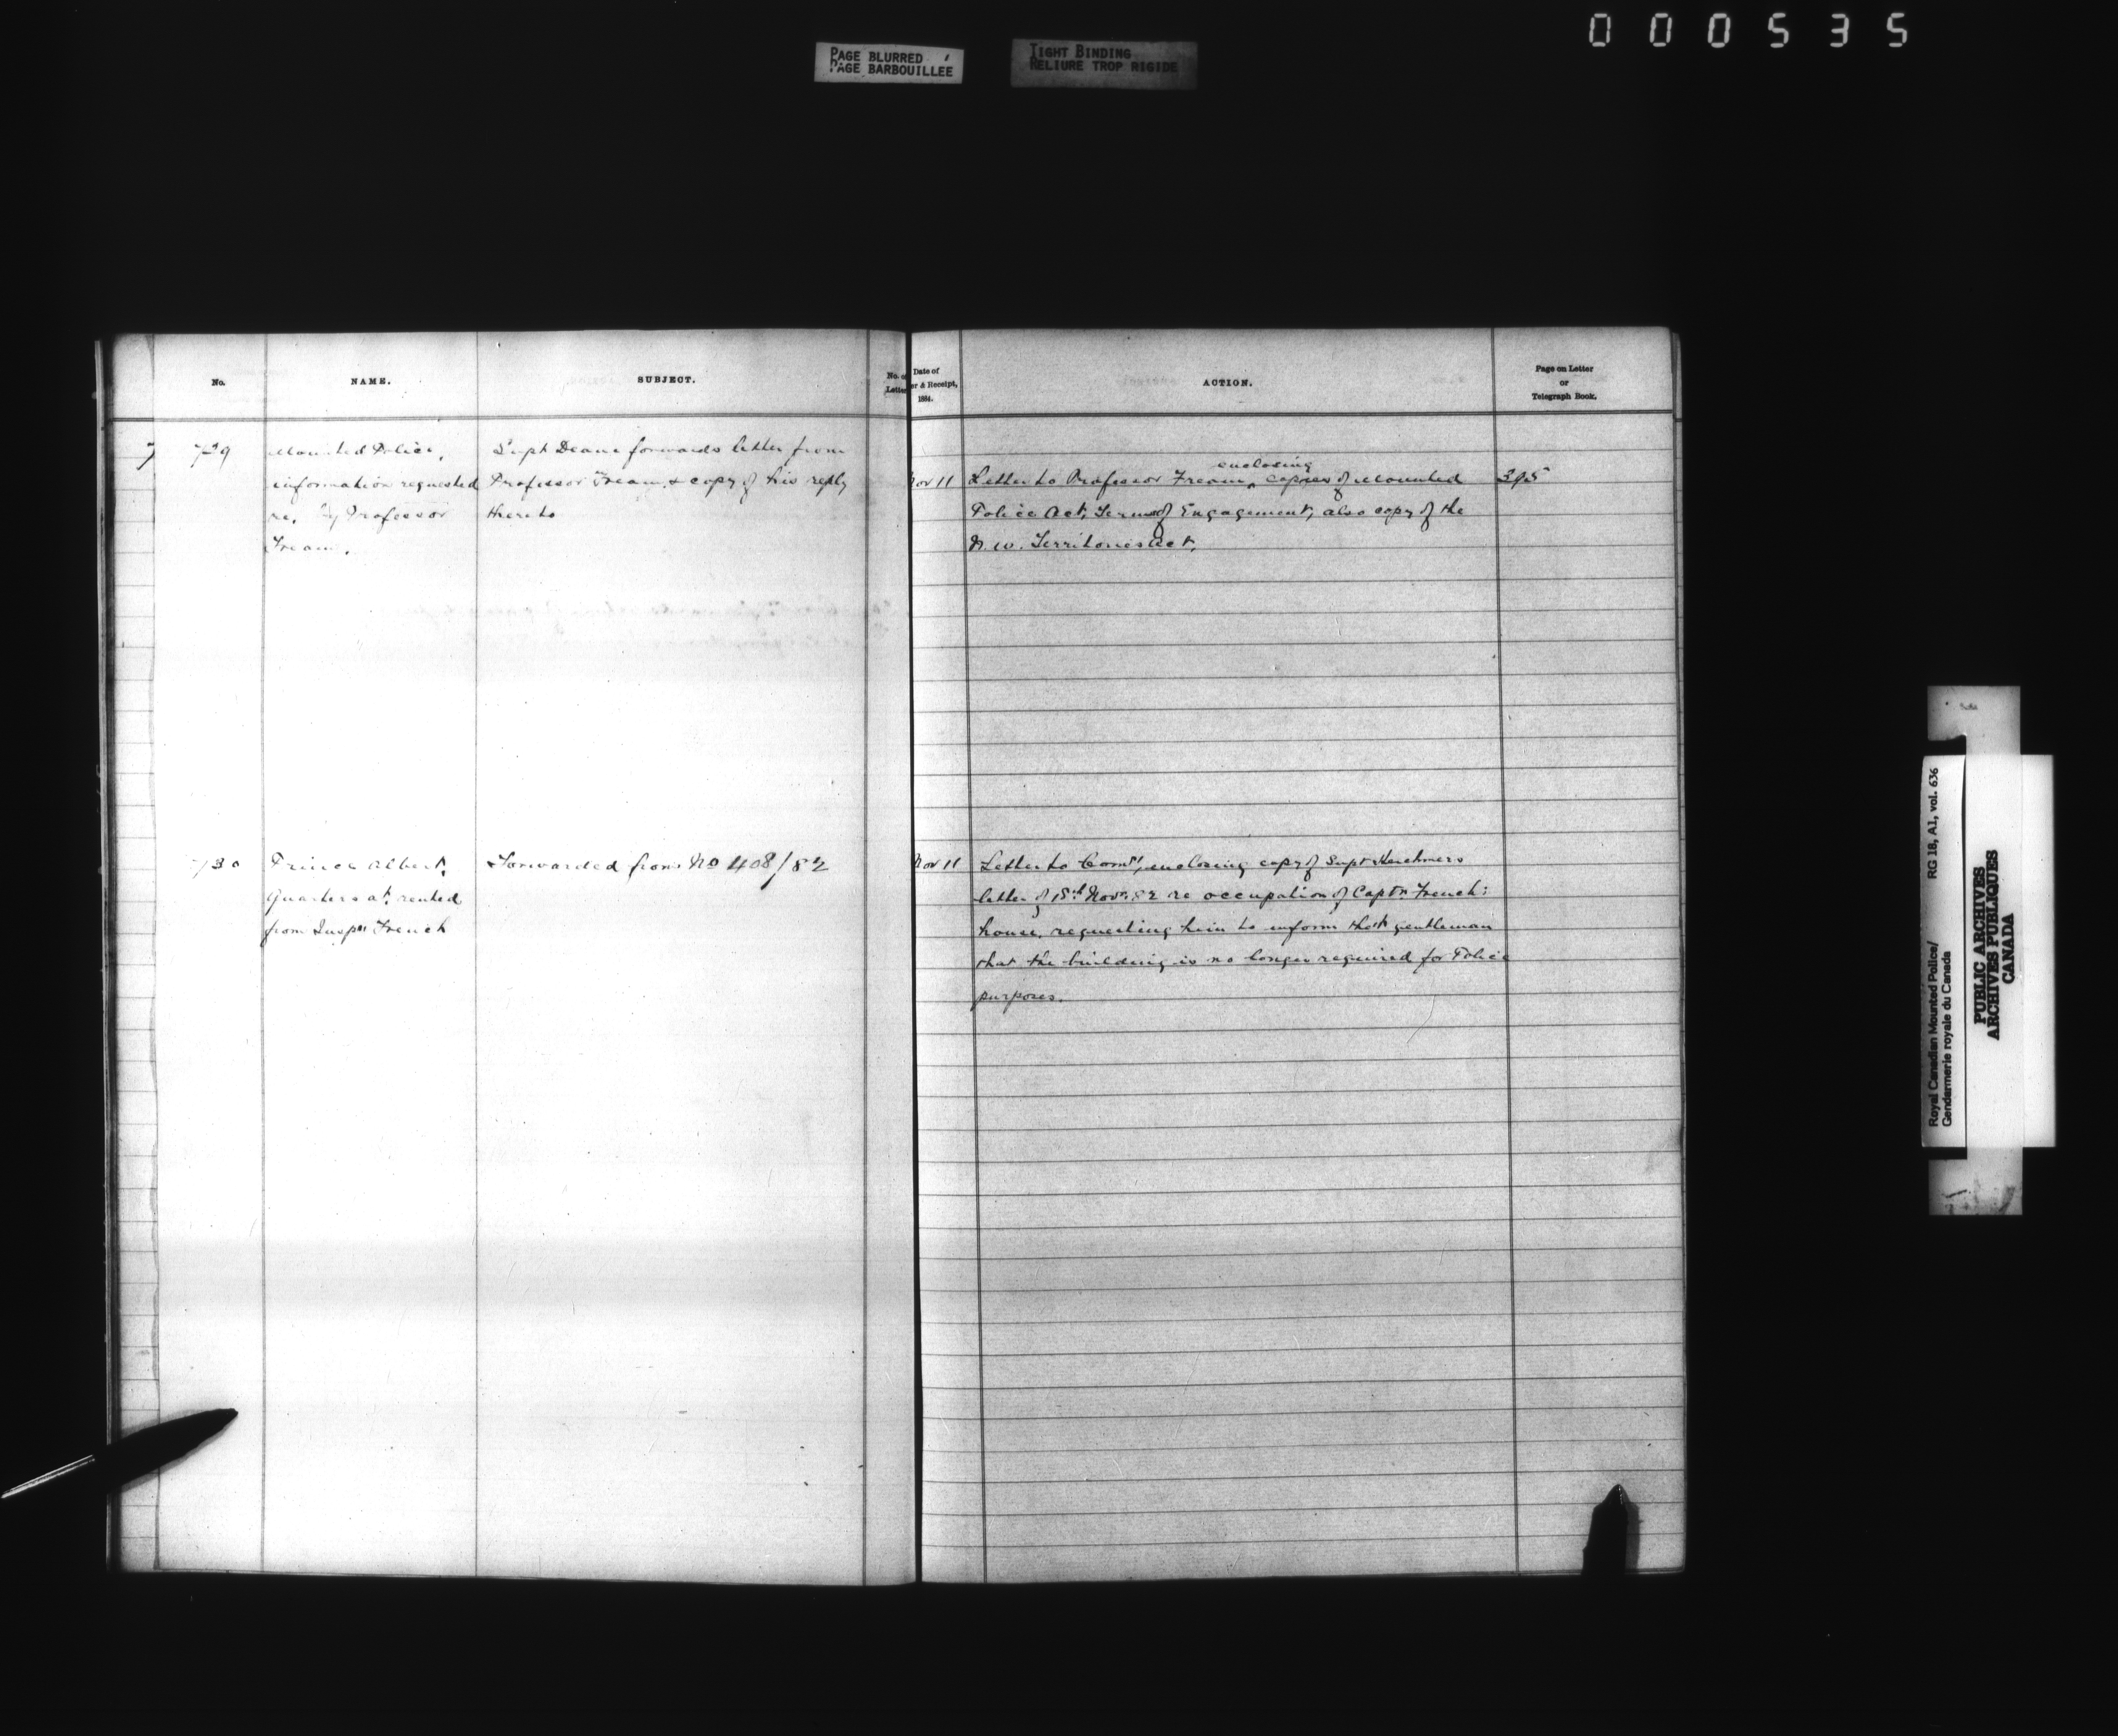 000535
PAGE BLURRED
PAGE BARBOUILLEE
TIGHT BINDING
RELIURE TROP RIGIDE
No.
NAME.
SUBJECT.
No. of
Letter
Date of
er & Receipt,
1884.
ACTION.
Page on Letter
or
Telegraph Book.
7
729
Mounted Police,
information requested
re, by Professor
Fream.
Supt Deane forwards letter from
Professor Fream, & copy of his reply
thereto
Nov 11
enclosing
Letter to Professor Fream, copies of Mounted
Police Act, Terms of Engagement, also copy of the
N.W. Territories Act.
395
730
Prince Albert,
Quarters at, rented
from Inspr French
Forwarded from No 408/82
Nov 11
Letter to Comr, enclosing copy of Supt Herchmers
letter of 18th Novr. 82 re occupation of Captn French:
house, requesting him to inform that gentleman
that the building is no longer required for Police
purposes.
Royal Canadian Mounted Police/
Gendarmerie royale du Canada
RG 18, A1, vol. 636
PUBLIC ARCHIVES
ARCHIVES PUBLIQUES
CANADA